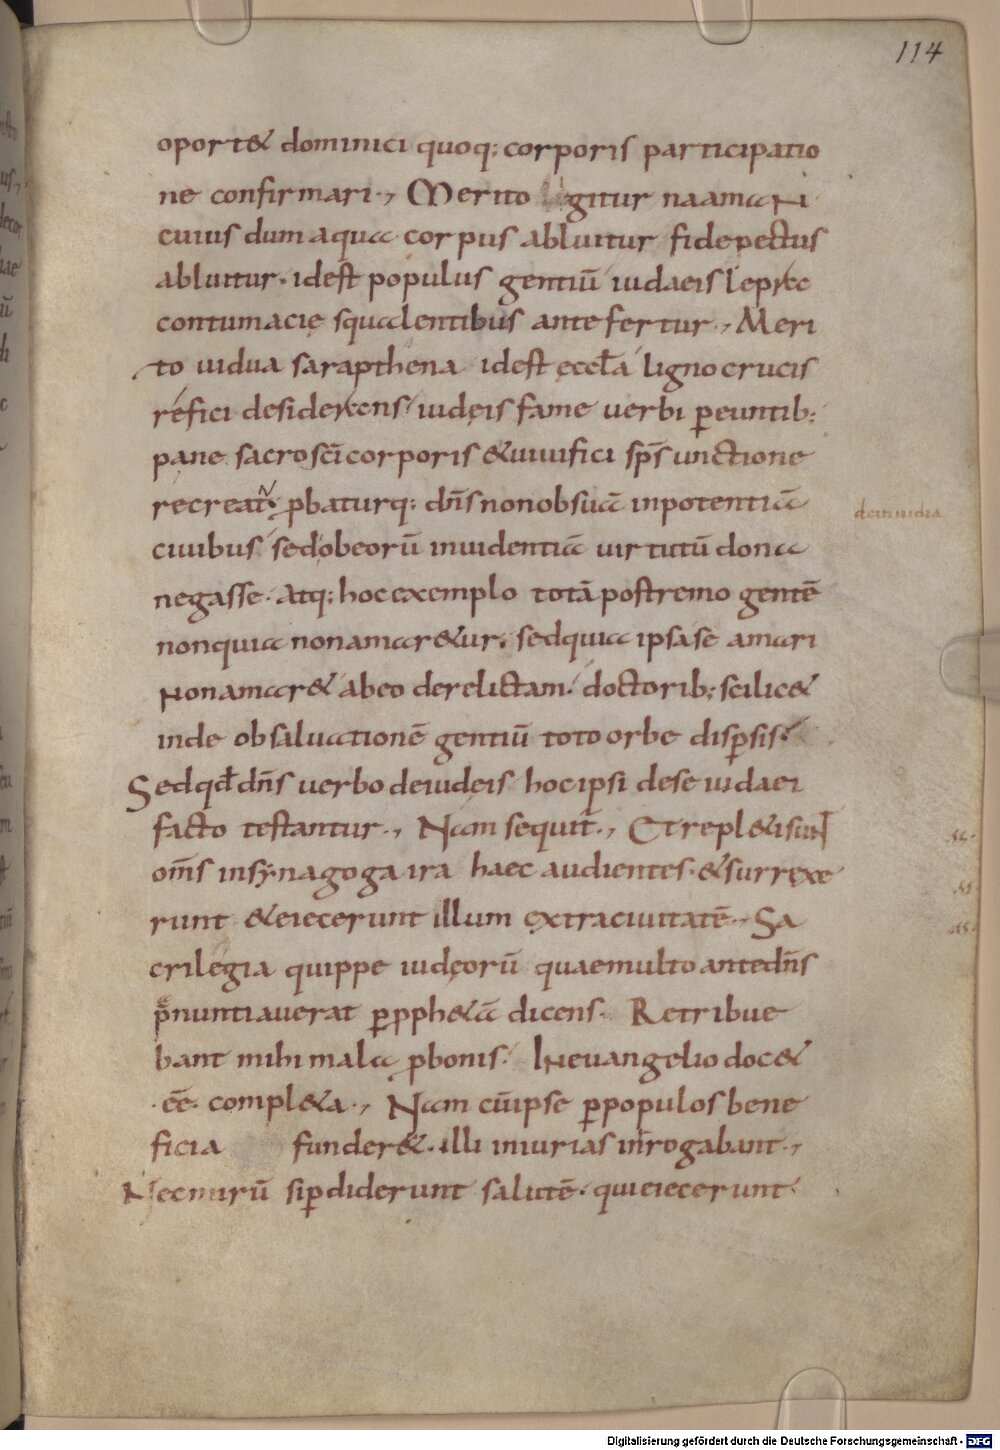 114
oport& dominici quoq; corporis participatio
ne confirmari., Merito legitur naamaN
cuius dum aqua corpus abluitur fide pectus
abluitur. id est populus gentiū iudaeis lepra
contumacię squalentibus antefertur., Meri
to uidua sarapthena id est ęccła ligno crucis
refici desiderans. iudęis fame uerbi ꝑeuntib;
pane sacrosc̄i corporis & uiuifici sp̄s unctione
recreat᷒. ꝓbaturq; dn̄s non ob suā inpotentiā
ciuibus sed ob eorū inuidentiā uirtutū dona
negasse. atq; hoc exemplo totā postremo gentē
non quia non amar&ur. sed quia ipsa se amari
Non amar& ab eo derelictam. doctorib; scilic&
inde ob saluationē gentiū toto orbe disꝑsis.
Sed qđ dn̄s uerbo de iudęis hoc ipsi de se iudaei
facto testantur., Nam sequit̄., Et repl&i sunt
om̄s in synagoga ira haec audientes. & surrexe
runt & eiecerunt illum extra ciuitatē. Sa
crilegia quippe iudęorū quae multo ante dn̄s
p̄nuntiauerat ꝑ ꝓph&ā dicens. Retribue
bant mihi mala ꝓ bonis. IN euangelio doc&
.eē. compl&a., Nam cū ipse ꝑ populos bene
ficia funder&. illi iniurias inrogabant.,
Nec mirū si ꝑdiderunt salutē. qui eiecerunt
de inuidia
Digitalisierung gefördert durch die Deutsche Forschungsgemeinschaft - DFG